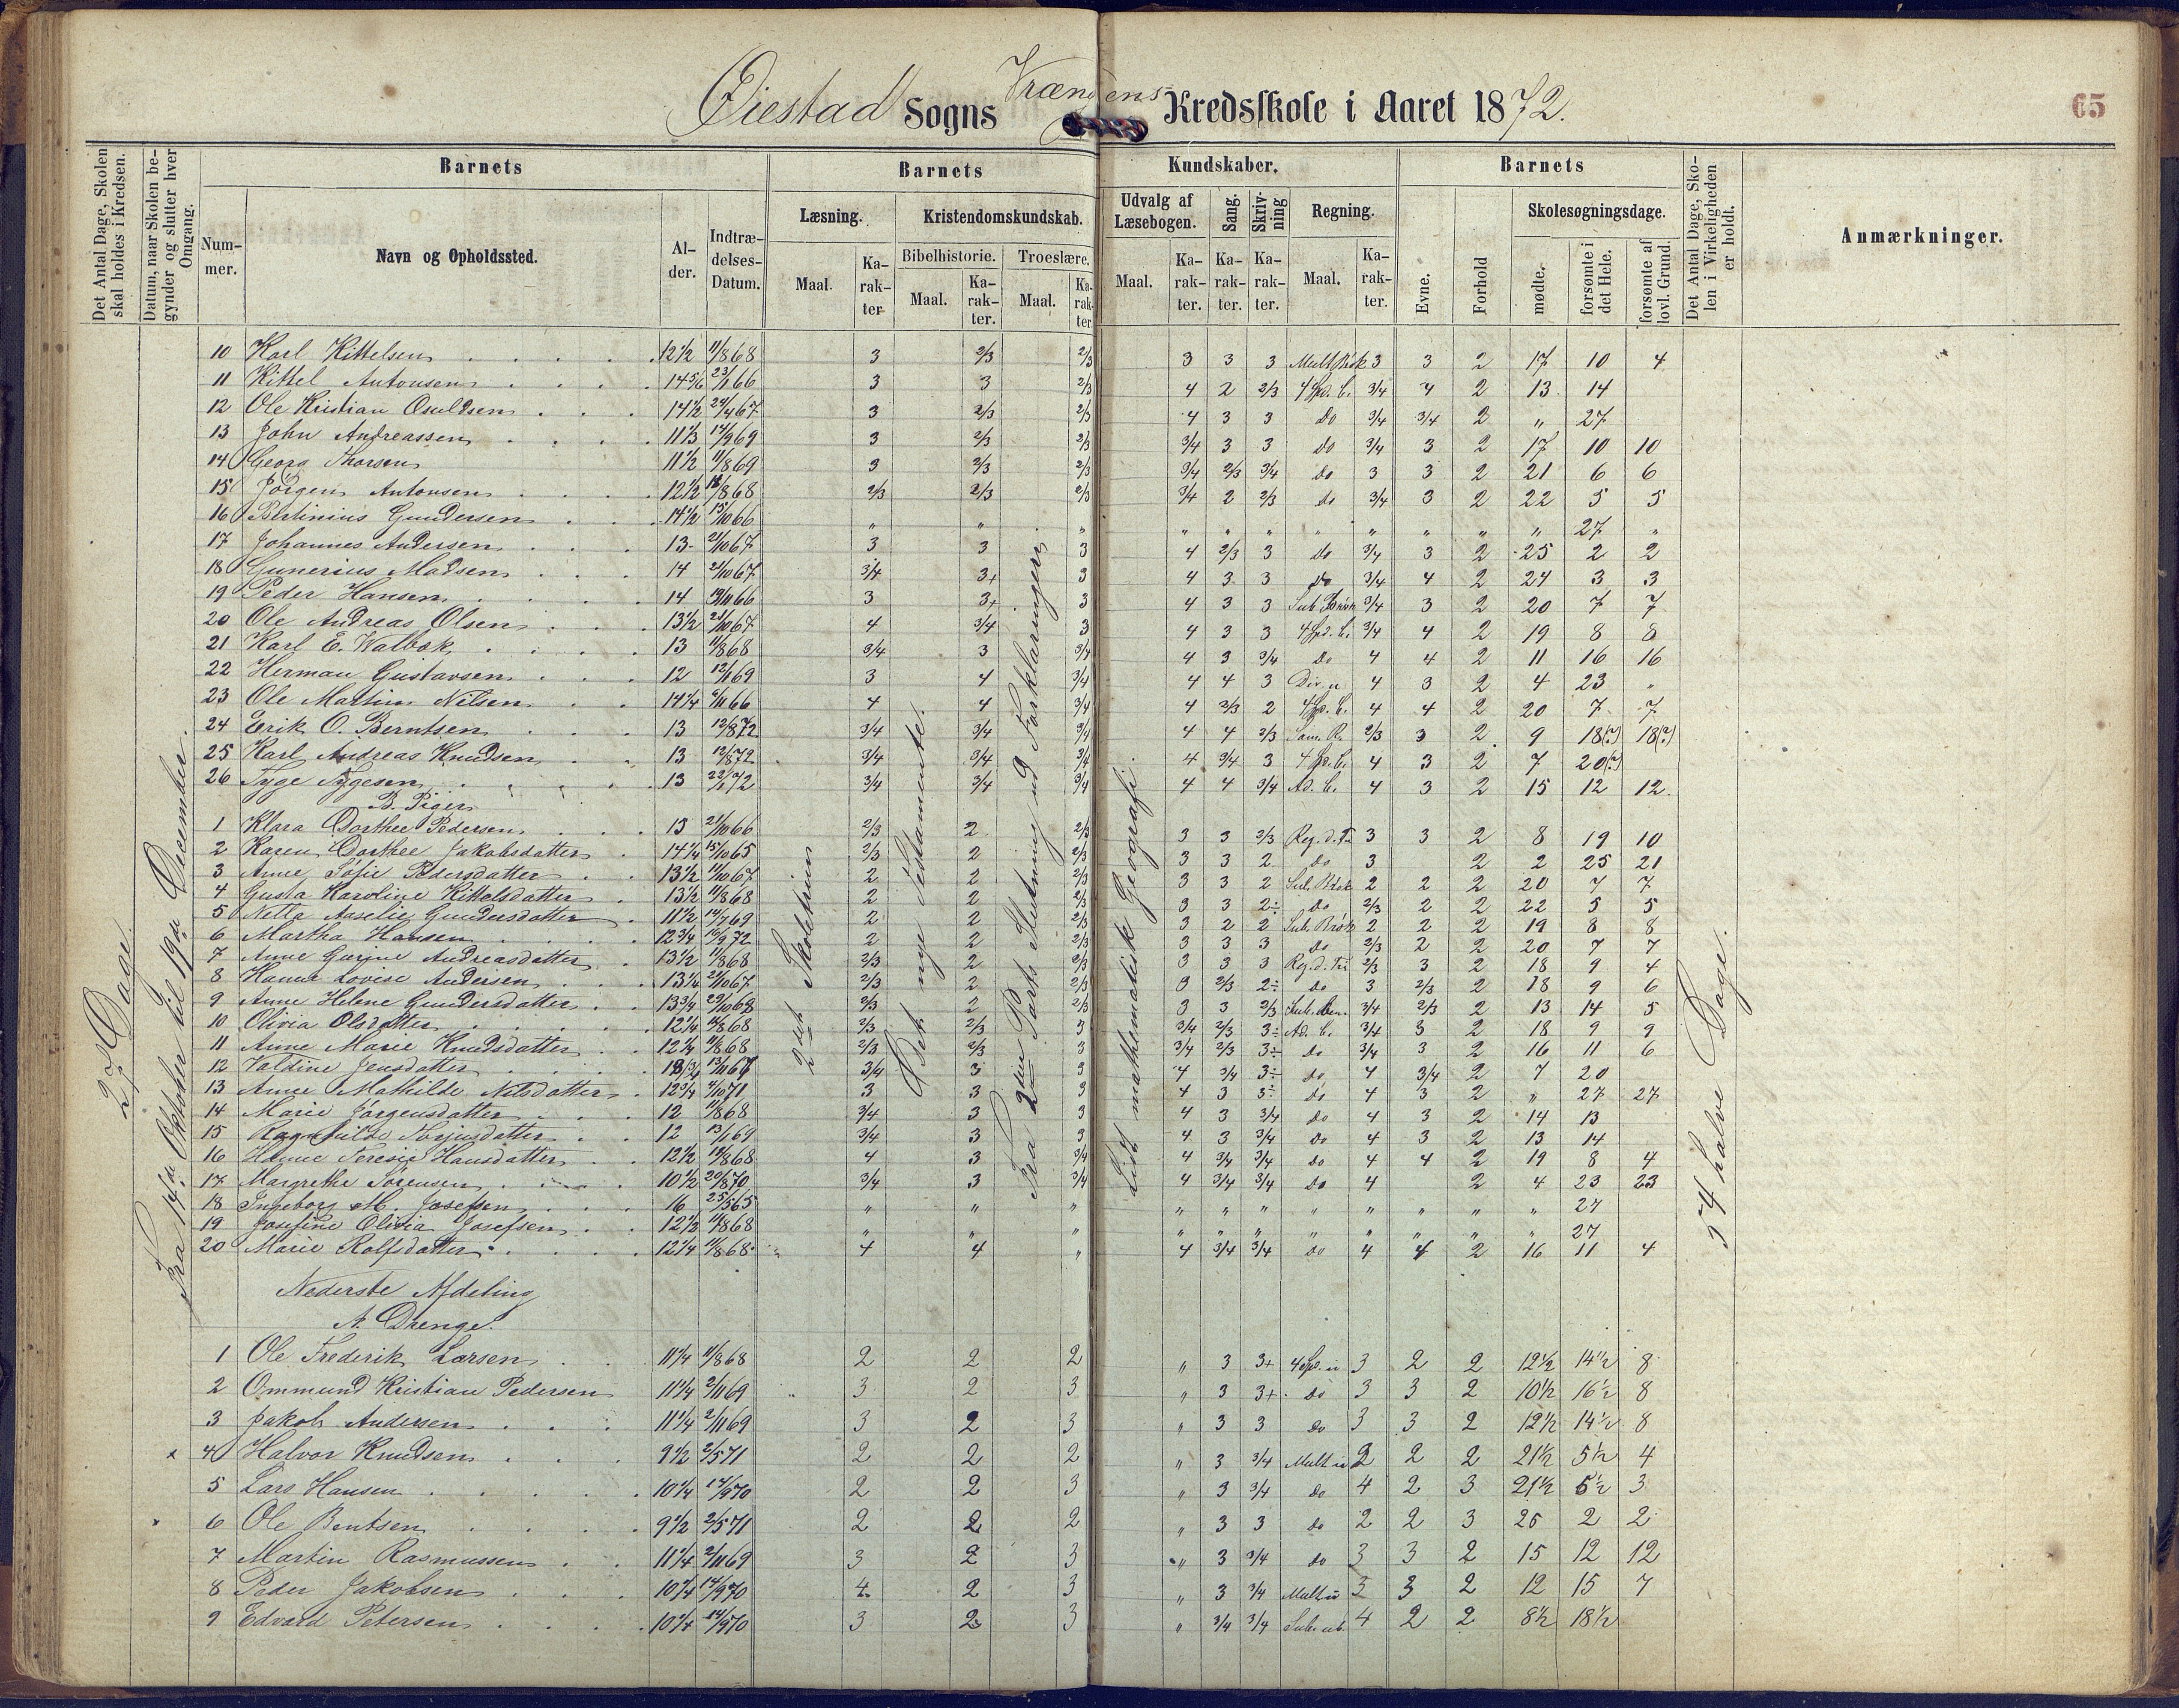 Øiestad Sogns Vrængens Kredsskole i Aaret 1872.
65
Det Antal Dage, Skolen skal holdes i Kredsen.
Datum, naar Skolen begynder og slutter hver Omgang.
Barnets
Nummer.
Navn og Opholdssted.
Alder.
Indtrædelses-Datum.
Barnets
Kundskaber.
Læsning.
Maal.
Karakter
Kristendomskundskab.
Bibelhistorie.
Maal.
Karakter.
Troeslære.
Maal.
Karakter.
Udvalg af Læsebogen.
Maal.
Karakter.
Sang.
Karakter.
Skrivning
Karakter.
Regning.
Maal.
Karakter.
Barnets
Evne.
Forhold
Skolesøgningsdage.
mødte.
forsømte i det Hele.
forsømte af lovl. Grund.
Det Antal Dage, Skolen i Virkeligheden er holdt.
Anmærkninger.
27 Dage.
Fra 14de Oktober til 19de December.
2det Skoletrin
Det nye Testamente.
Fra 2den Parts Slutning ud Forklaringen
Lidt mathematisk Geografi.
54 halve Dage.
10 Karl Kittelsen 12 1/2 11/8 68 3 2/3 2/3 3 3 3 Mult Brøk 3 3 2 17 10 4
11 Kittel Antonsen 14 5/6 23/11 66 3 3 2/3 4 2 2/3 4 Sp. b. 3/4 4 2 13 14
12 Ole Kristian Osuldsen 14 1/2 24/4 67 3 2/3 2/3 4 3 3 Do 3/4 3/4 2 " 27
13 John Andreassen 11 1/3 14/9 69 3 2/3 2/3 3/4 3 3 Do 3/4 3 2 17 10 10
14 Georg Thorsen 11 1/2 11/8 69 3 2/3 2/3 3/4 2/3 3/4 Do 3 3 2 21 6 6
15 Jörgen Antonsen 12 1/2 /8 68 2/3 2/3 2/3 3/4 2 2/3 do 3/4 3 2 22 5 5
16 Bertinius Gundersen 14 1/2 15/10 66 " " " " " " " " " " " 27 "
17 Johannes Andersen 13 21/10 67 3 3 3 4 2/3 3 do 3/4 3 2 25 2 2
18 Gunerius Madsen 14 21/10 67 3/4 3+ 3 4 3 3 Do 3/4 4 2 24 3 3
19 Peder Hansen 14 19/11 66 3 3+ 3 4 3 3 Sub. Brøk 3/4 3 2 20 7 7
20 Ole Andreas Olsen 13 1/2 21/10 67 4 3/4 3 4 3 3 4 Sp. b. 3/4 4 2 19 8 8
21 Karl E. Walbok 13 11/8 68 3/4 3 3/4 4 3 3/4 Do 4 4 2 11 16 16
22 Herman Gustavsen 12 12/1 69 3 4 3/4 4 4 3 Div. u. 4 3 2 4 23 "
23 Ole Martin Nilsen 14 1/4 6/11 66 4 4 3/4 4 2/3 2 4 Sp. b. 4 4 2 20 7 7
24 Erik O. Berntsen 13 12/8 72 3/4 3/4 3/4 4 4 2/3 Sam. R. 2/3 3 2 9 18(?) 18(?)
25 Karl Andreas Knudsen 13 12/8 72 3/4 3/4 3/4 4 3/4 3 4 Sp. b. 4 3 2 7 20(?)
26 Tyge Tygesen 13 3/4 3/4 3/4 4 4 3/4 Ad. b. 4 3 2 15 12 12
B. Piger
1 Klara Dorthee Pedersen 13 21/10 66 2/3 2 2/3 3 3 2/3 Reg. d. Tri 3 3 2 8 19 10
2 Karen Dorthee Jakobsdatter 14 1/4 15/10 65 2/3 2 2/3 3 3 2 Do 3 2 2 25 21
3 Anne Sofie Pedersdatter 13 1/2 11/10 67 2 2 2/3 3 3 2 Sub. Brøk 2 2 2 20 7 7
4 Gusta Karoline Kittelsdatter 13 1/2 11/8 68 2 2 2/3 3 3 2÷ Do 2/3 2 2 22 5 5
5 Netta Aaselie Gundersdatter 11 1/2 14/7 69 2 2 2/3 3 2 2 Sub. Brøk 2 2 2 19 8 8
6 Martha Hansen 12 3/4 16/9 72 2 2 2/3 3 3 3 Do 2/3 2 2 20 7 7
7 Anne Gurine Andreasdatter 13 1/2 11/8 68 2/3 2 2/3 3 3 3 Reg. d. Tri 2/3 3 2 18 9 4
8 Hanna Lovise Andersen 13 1/4 21/10 67 2/3 2 2/3 3 2/3 2÷ Do 3 2/3 2 18 9 6
9 Anne Helene Gundersdatter 13 3/4 29/10 68 2/3 2 2/3 3 3 2/3 Sub. ben. 3/4 2/3 2 13 14 5
10 Olivia Olsdatter 12 1/4 11/8 68 2/3 2/3 3 3/4 2/3 3÷ Ad. b. 3/4 3 2 18 9 9
11 Anne Marie Knudsdatter 12 1/4 11/8 68 2/3 2/3 3 3/4 2/3 3÷ Do 3/4 3 2 16 11 6
12 Valdine Jensdatter 13/11 67 3/4 3 3 4 3/4 3÷ Do 4 3/4 2 7 20
13 Anne Mathilde Nilsdatter 12 3/4 4/10 71 3 3 3 4 3 3÷ do 4 3 2 " 27 27
14 Marie Jörgensdatter 12 11/8 68 3/4 3 3 4 3 3/4 Do 4 3 2 14 13
15 Ragnhilde 12 13/1 69 3/4 3 3 4 3 3/4 Do 4 3 2 13 14
16 Hanne Teresie Hansdatter 12 1/2 19/8 68 4 3 3/4 4 3/4 3/4 Do 4 4 2 19 8 4
17 Margrethe Sörensen 10 1/2 20/8 70 3/4 3 3/4 4 3/4 3/4 Do 4 2 4 23 23
18 Ingeborg M. Josefsen 16 25/5 65 " " " " " " " " " " " 27
19 Josefine Olivia Josefsen 12 1/2 11/8 68 " " " " " " " " " " " 27
20 Marie Rolfsdatter 12 1/4 11/8 68 4 4 " 4 3/4 3/4 Do 4 4 2 16 11 4
Nederste Afdeling
A. Drenge.
1 Ole Frederik Larsen 11 1/4 11/8 68 2 2 2 " 3 3+ 4 Sp. u 3 2 2 12 1/2 14 1/2 8
2 Ommund Kristian Pedersen 11 1/4 2/11 69 3 2 3 " 3 3+ do 3 3 2 10 1/2 16 1/2 8
3 Jakob Andersen 11 1/4 2/11 69 3 2 3 " 3 3 do 3 3 2 12 1/2 14 1/2 8
x 4 Halvor Knudsen 9 1/2 2/5 71 2 2 2 " 3 3/4 Mult u 2 2 2 21 1/2 5 1/2 4
5 Lars Hansen 10 1/4 14/9 70 2 2 3 " 3 3/4 do 4 2 3 21 1/2 5 1/2 3
6 Ole Bentsen 9 1/2 2/5 71 2 2 2 " 3 3 do 2 2 3 25 2 2
7 Martin Rasmussen 11 1/4 2/11 69 3 2 3 " 3 3/4 do 3 3 2 15 12 12
8 Peder Jakobsen 10 1/4 14/9 70 4 2 3 " 3 3/4 Mult u 3 3 2 12 15 7
9 Edvard Petersen 10 1/4 14/9 70 3 2 3 " 3/4 3/4 Sub. ub. 4 2 2 8 1/2 18 1/2